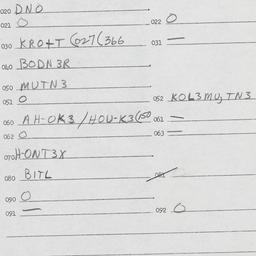 020 DNO
021 O 022 O
030 KRO+T (027(366 031 —
040 BODN3R
050 MUTN3
051 O 052 KOL3MU, TN3
060 AH-OK3/HOU-K3(150 061 —
062 O 063 —
070 H-ONT3X
080 BITL 081
090 O
091 — 092 O